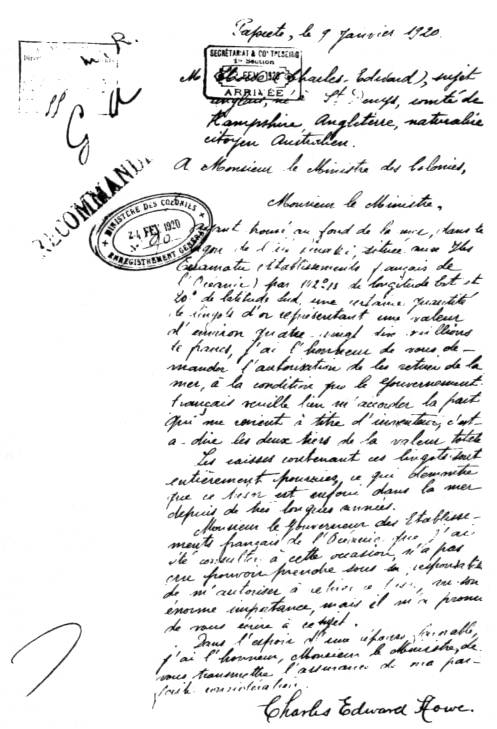 Papeete, le 9 Janvier 1920.
m. R.
SECRÉTARIAT & CO
1e Section
FEV 1920
ARRIVÉE
M Howe (Charles-Edward), sujet
anglais, né à St Denys, comté de
Hampshire, Angleterre, naturalisé
citoyen Australien.
A Monsieur le Ministre des Colonies,
RECOMMANDÉ
MINISTÈRE DES COLONIES
24 FEV 1920
No
ENREGISTREMENT GÉNÉRAL
Monsieur le Ministre,
Ayant trouvé au fond de la mer, dans le
lagon de l'île située aux Iles
Tuamotu (Etablissements français de
l'Océanie) par de longitude Est et
20° de latitude Sud, une certaine quantité
de lingots d'or représentant une valeur
d'environ quatre vingt dix millions
de francs, j'ai l'honneur de vous de-
mander l'autorisation de les retirer de la
mer, à la condition que le Gouvernement
français veuille bien m'accorder la part
qui me revient à titre d'inventeur, c'est-
à-dire les deux tiers de la valeur totale
Les caisses contenant ces lingots sont
entièrement pourries, ce qui démontre
que ce trésor est enfoui dans la mer
depuis de très longues années.
Monsieur le Gouverneur des Etablisse-
ments français de l'Océanie que j'ai
été consulter à cette occasion n'a pas
cru pouvoir prendre sous sa responsabilité
de m'autoriser à retirer ce trésor, vu son
énorme importance, mais il m'a promis
de vous écrire à ce sujet.
Dans l'espoir d'une réponse favorable,
j'ai l'honneur, Monsieur le Ministre, de
vous transmettre l'assurance de ma par-
faite considération.
Charles Edward Howe.